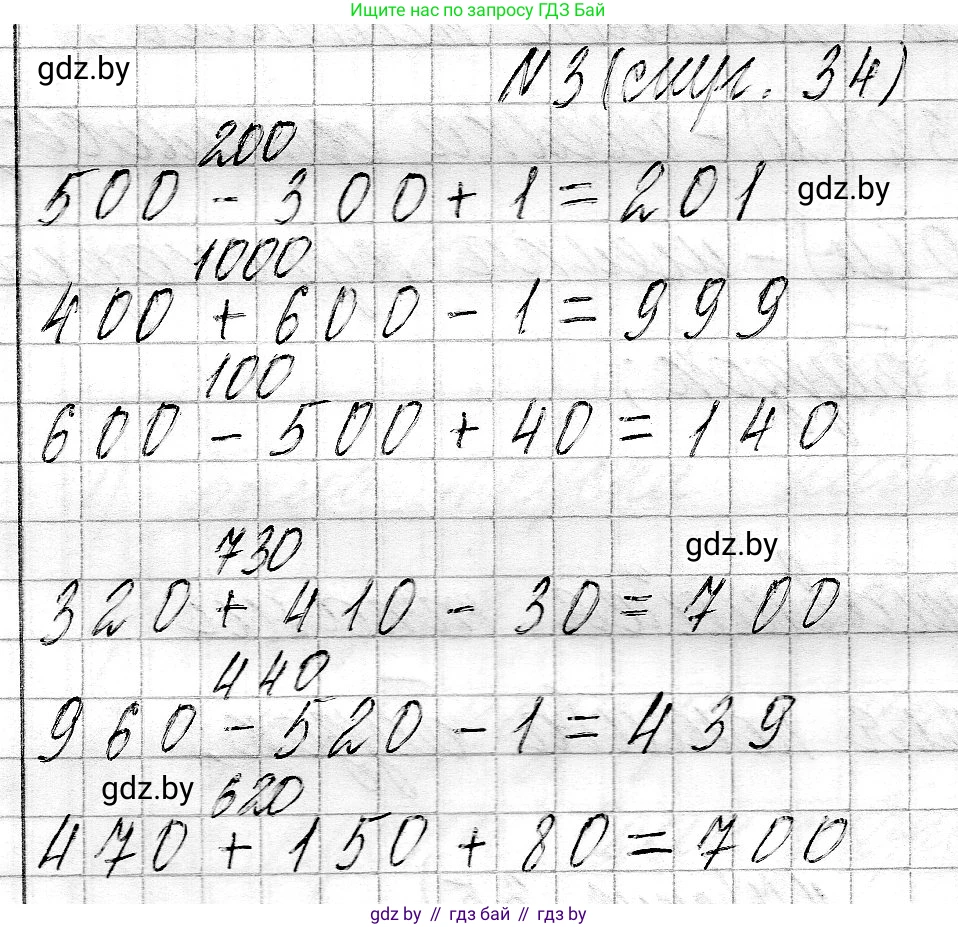 Ищите нас по запросу ГДЗ Бай
gdz.by
N 3 (стр. 34)
200
500 - 300 + 1 = 201
gdz.by
1000
400 + 600 - 1 = 999
100
600 - 500 + 40 = 140
730
gdz.by
320 + 410 - 30 = 700
440
960 - 520 - 1 = 439
gdz.by
620
470 + 150 + 80 = 700
gdz by // гдз бай // гдз by